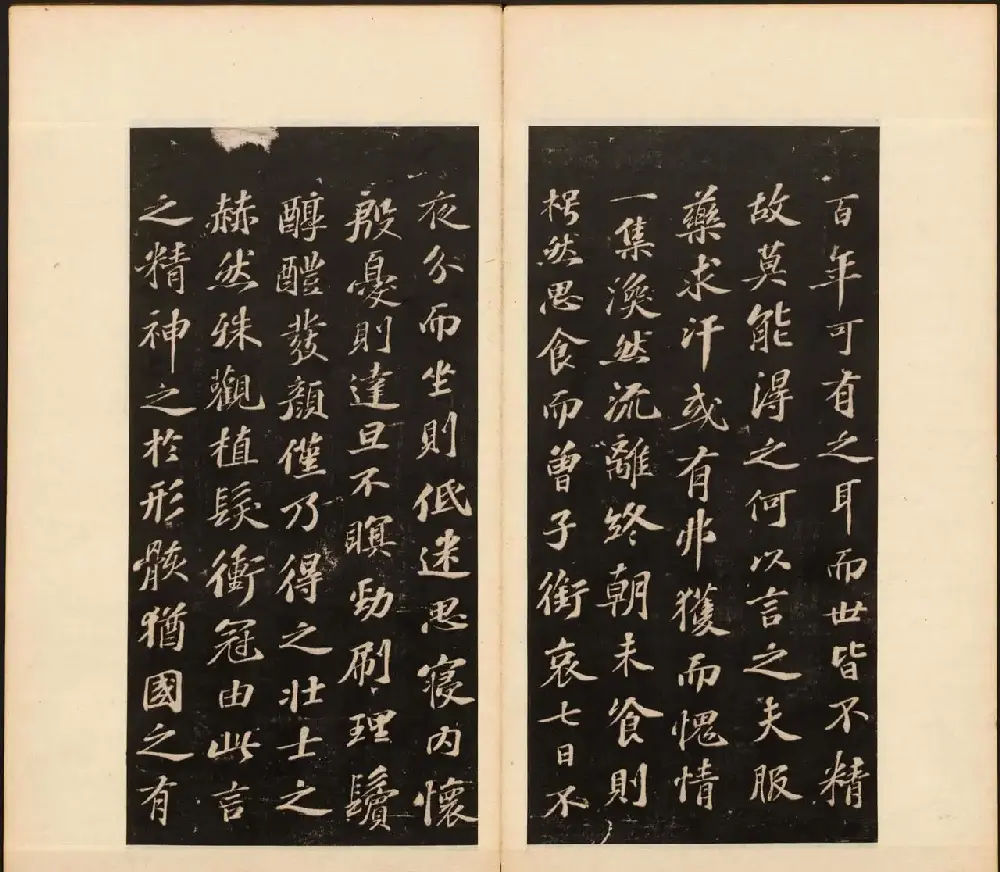 百年可有之耳而世皆不精
故莫能得之何以言之夫服
藥求汗或有非獲而愧情
一集渙然流離終朝未食則
枵然思食而曾子銜哀七日不
夜分而坐則低迷思寢內懷
殷憂則達旦不瞑勁刷理鬢
醇醴發顏僅乃得之壯士之
赫然殊觀植髮衝冠由此言
之精神之於形骸猶國之有